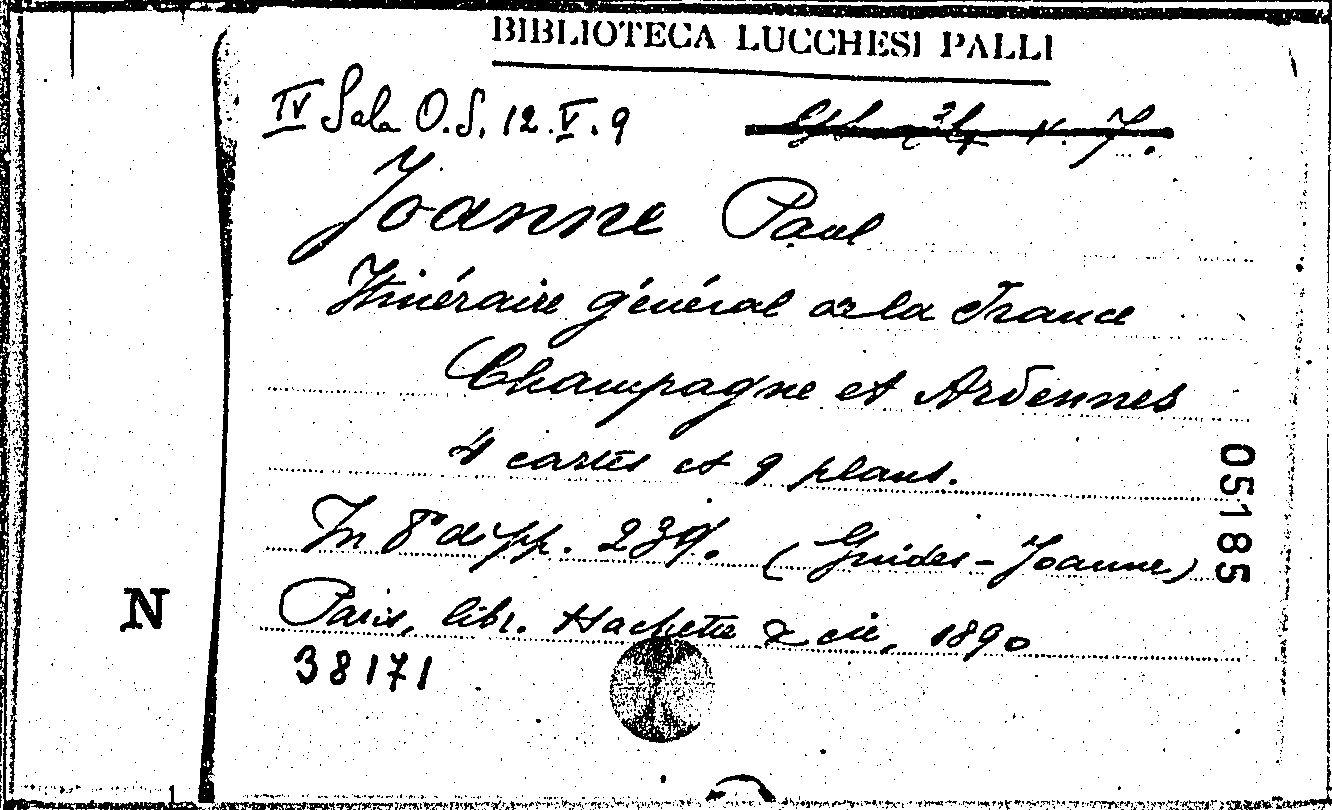 BIBLIOTECA LUCCHESI PALLI
IV Sala O.S. 12.V.9
Joanne Paul
Itinéraire général de la France
Champagne et Ardennes
4 cartes et 9 plans.
In 8° di pp. 239. (Guides-Joanne)
Paris, libr. Hachette & cie, 1890
38171
05185
N